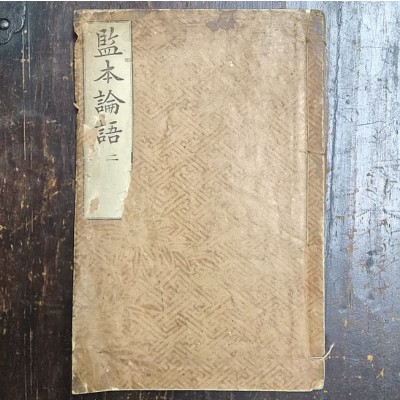 監本論語 二